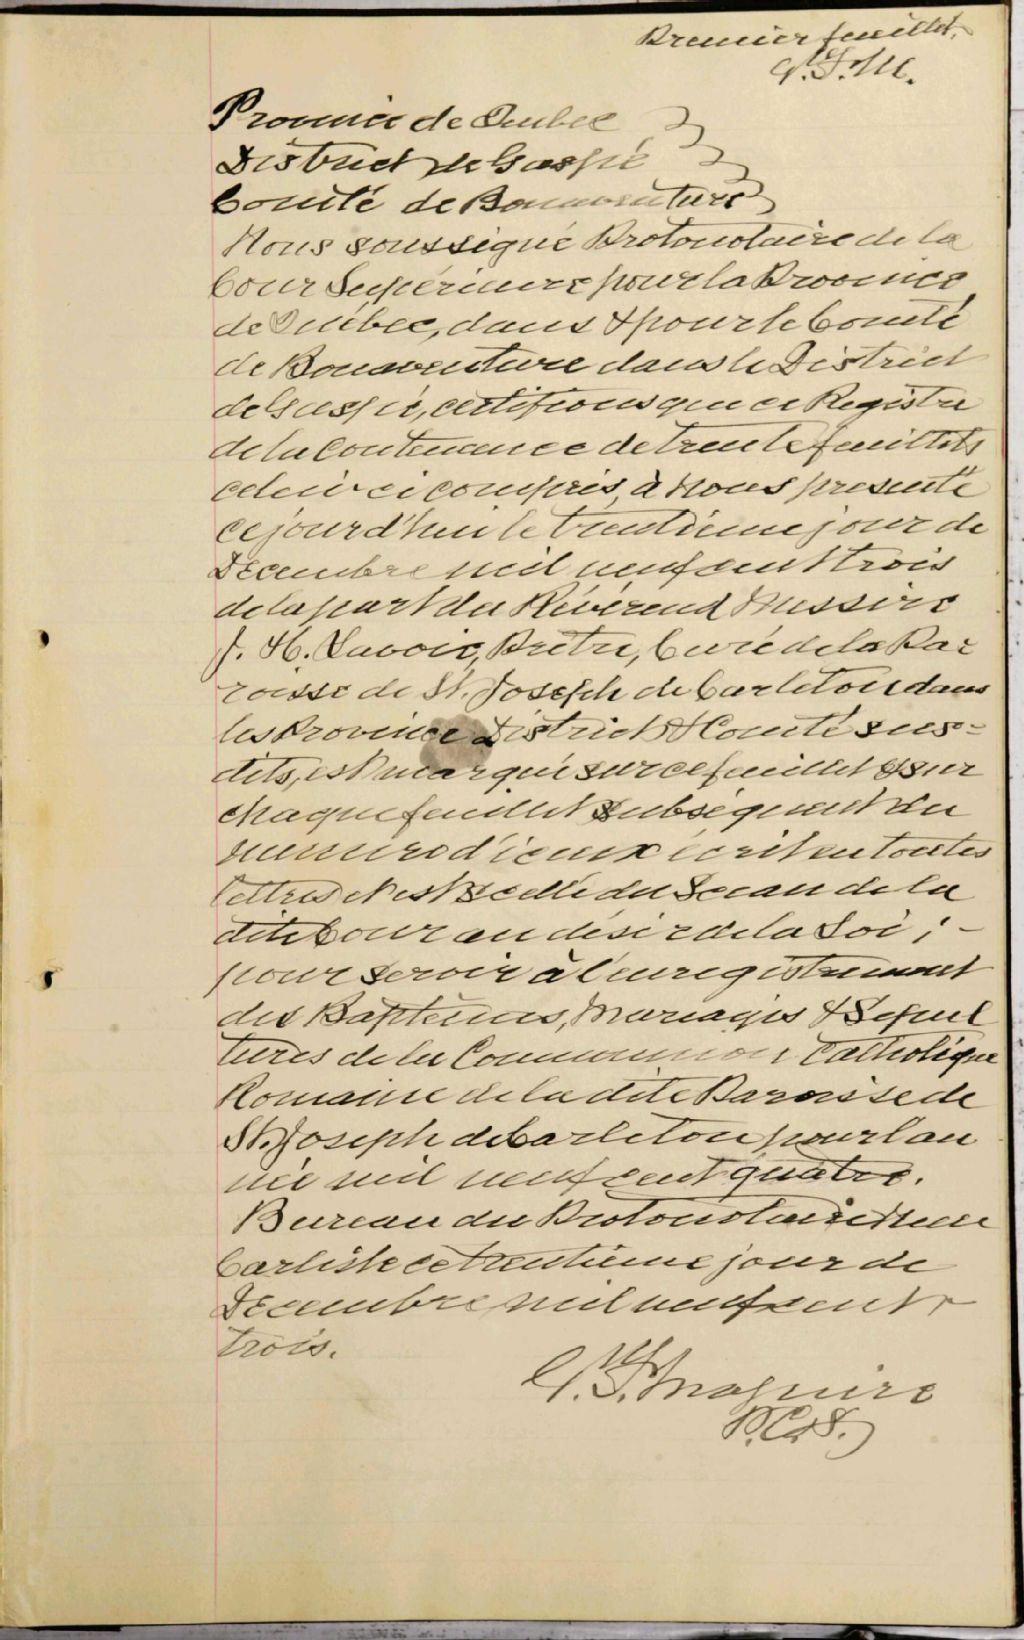 Premier feuillet.
V.F.M.
Province de Quebec
District de Gaspé
Comté de Bonaventure
Nous soussigné Protonotaire de la
Cour Supérieure pour la Province
de Québec, dans & pour le Comté
de Bonaventure dans le District
de Gaspé, certifions que ce Registre
de la Contenance de trente feuillets
celui ci compris, à Nous presenté
ce jourd'hui le trentième jour de
Décembre mil neuf cent trois
de la part du Révérend Messire
J. H. Lavoie, Prêtre, Curé de la Pa=
roisse de St. Joseph de Carleton dans
les Province District & Comté sus=
dits, est marqué sur ce feuillet & sur
chaque feuillet subséquent du
numero d'iceux écrit en toutes
lettres et est scellé du Sceau de la
dite Cour au désir de la Loi ; -
pour servir à l'enregistrement
des Baptêmes, Mariages & Sepul
tures de la Communion Catholique
Romaine de la dite Paroisse de
St. Joseph de Carleton pour l'an
née mil neuf cent quatre.
Bureau du Protonotaire New
Carlisle ce trentième jour de
Décembre mil neuf cent
trois.
Maguire
P.C.S.